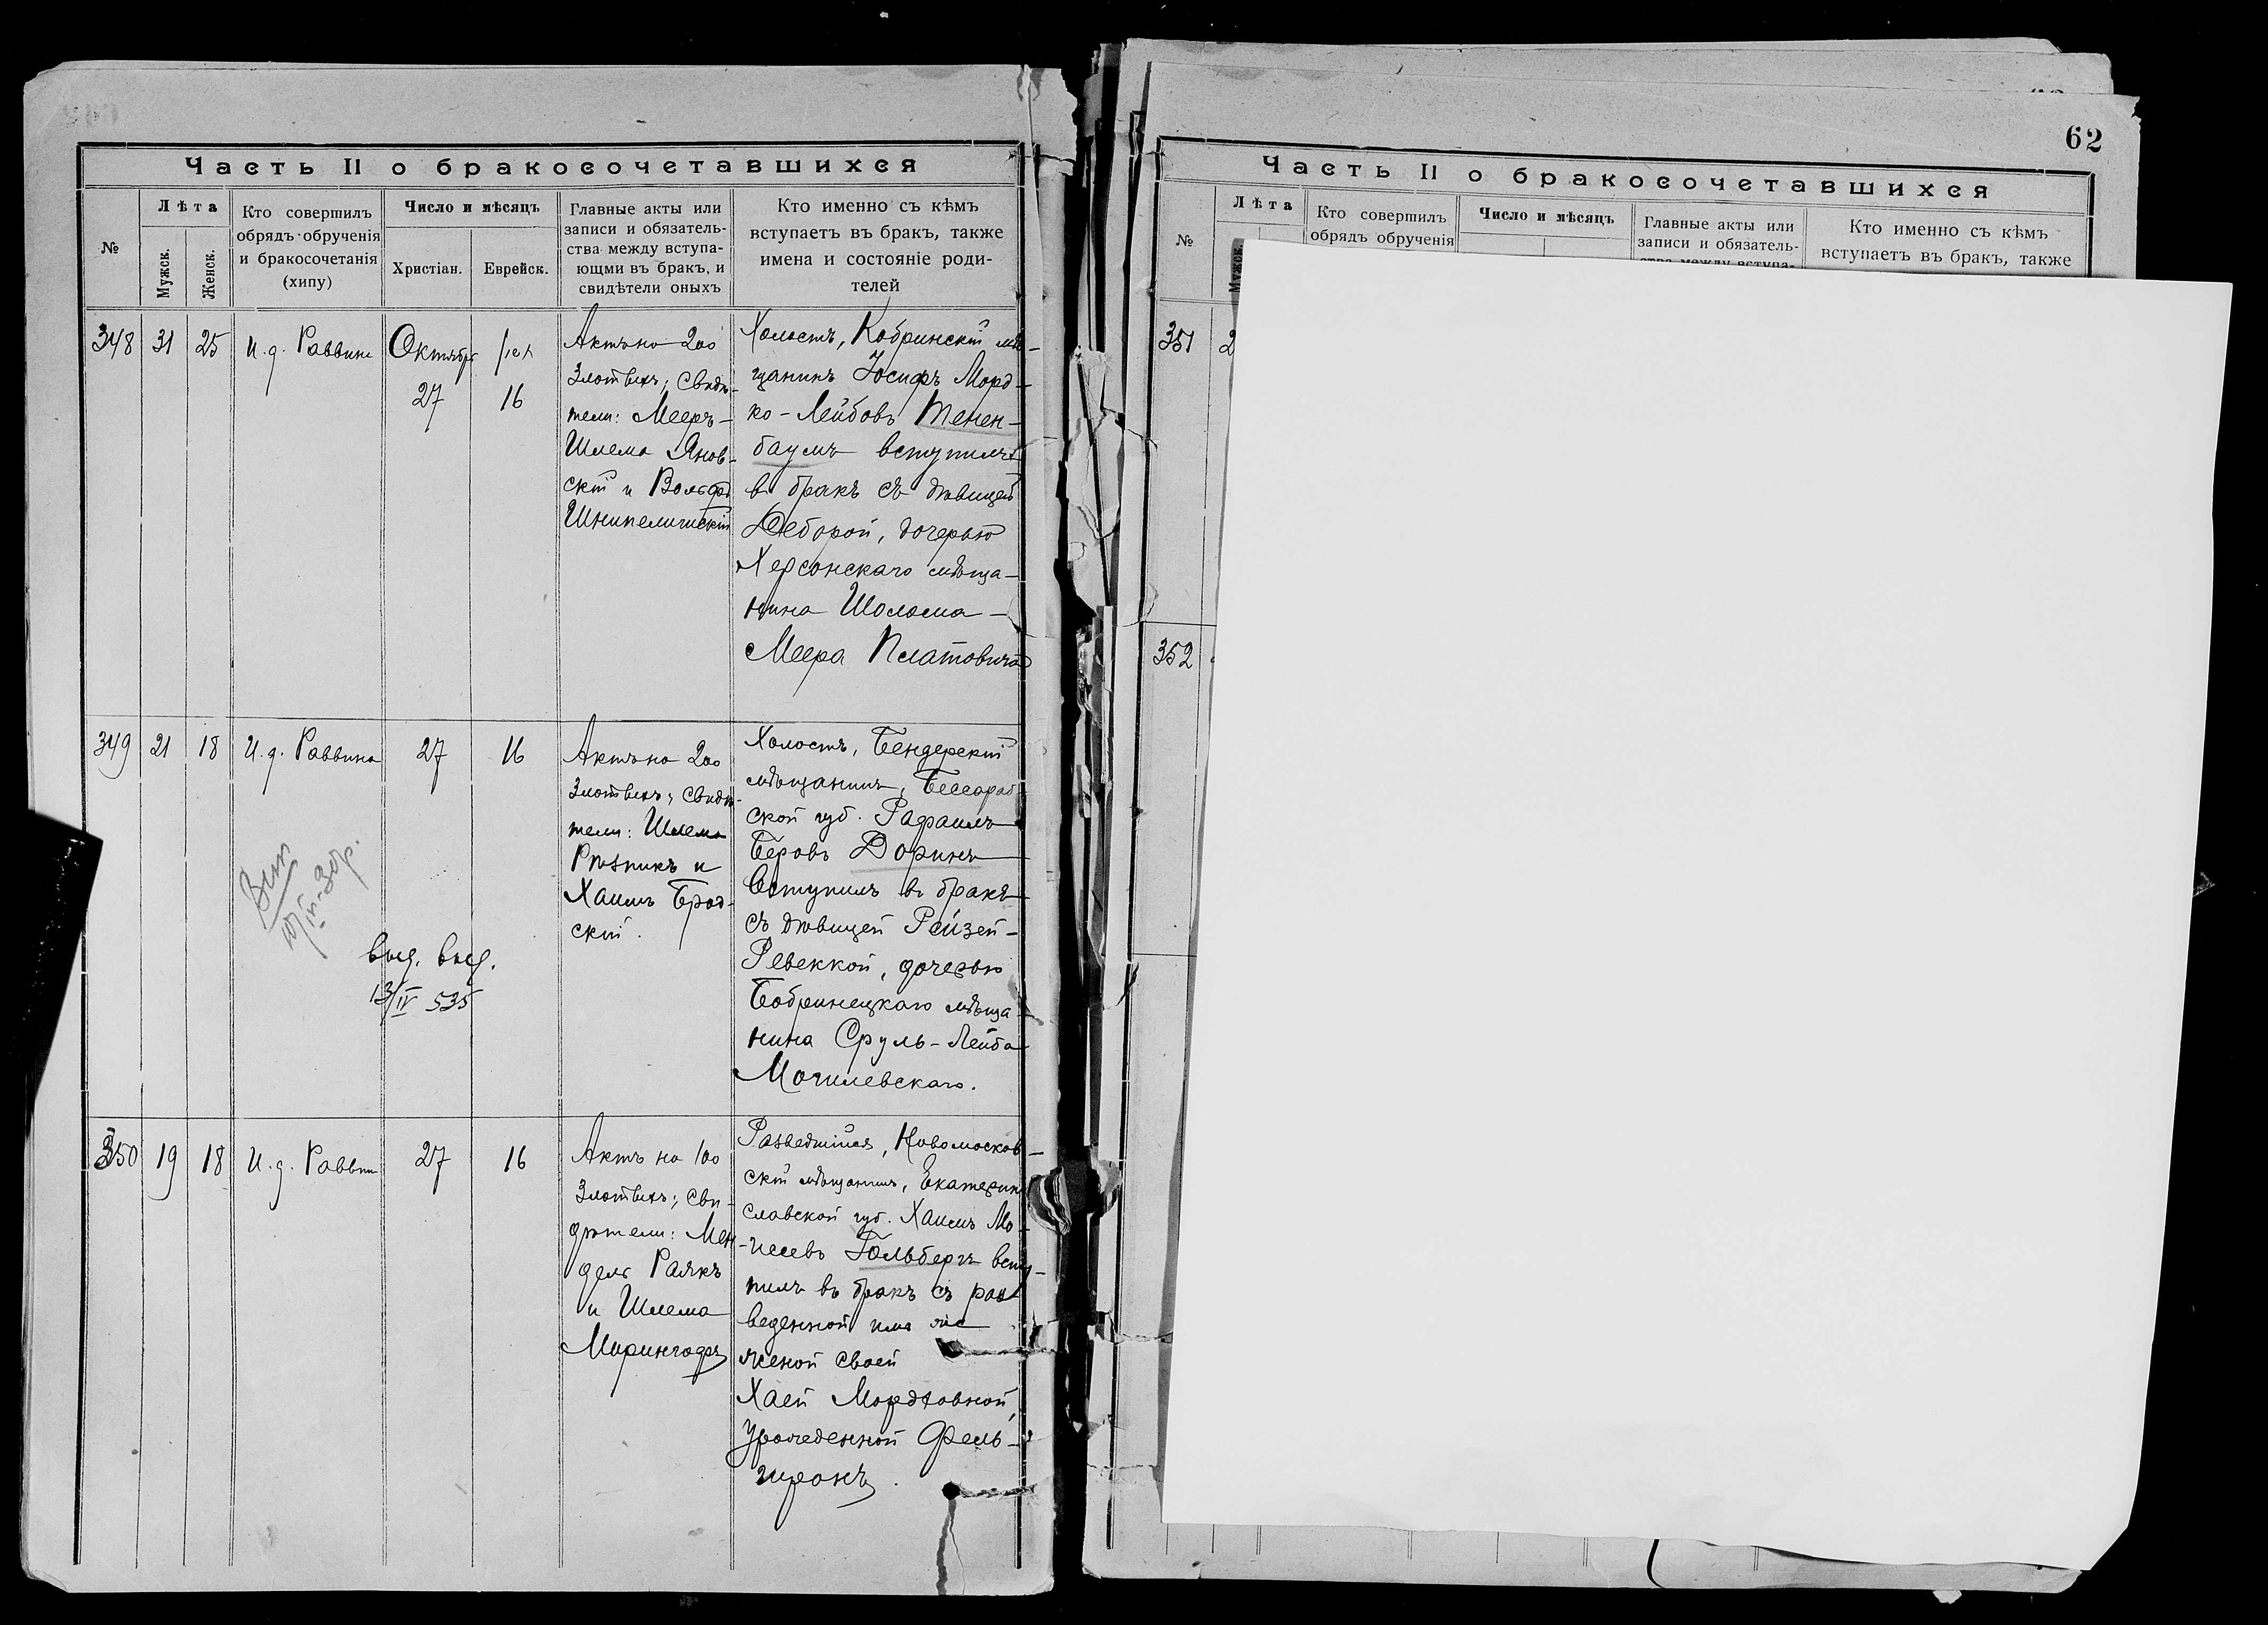 Часть II о бракосочетавшихся
№
Лѣта
Мужск.
Женск.
Кто совершилъ
обрядъ обрученія
и бракосочетанія
(хипу)
Число и мѣсяцъ
Христіан.
Еврейск.
Главные акты или
записи и обязатель-
ства между вступа-
ющми въ бракъ, и
свидѣтели оныхъ
Кто именно съ кѣмъ
вступаетъ въ бракъ, также
имена и состояніе роди-
телей
348
31
25
И. д. Раввина
Октября
27
16
Актъ на 200
злотыхъ; свидѣ-
тели: Мееръ-
Шлема Янов-
скій и Вольфъ
Шнипелишскій
Холостъ, Кобринскій мѣ-
щанинъ Іосифъ Морд-
ко-Лейбовъ Тенен-
баумъ вступилъ
въ бракъ съ дѣвицей
Деборой, дочерью
Херсонскаго мѣща-
нина Шолома-
Меера Платовича
349
21
18
И. д. Раввина
27
16
Актъ на 200
злотыхъ; свидѣ-
тели: Шлема
Рѣзникъ и
Хаимъ Брод-
скій.
Холостъ, Бендерскій
мѣщанинъ, Бессараб-
ской губ. Рафаилъ
Беровъ Доринъ
вступилъ въ бракъ
съ дѣвицей Рейзей-
Ревеккой, дочерью
Бобринецкаго мѣща-
нина Сруль-Лейба
Могилевскаго.
13/IV 535
350
19
18
И. д. Раввина
27
16
Актъ на 100
злотыхъ; сви-
дѣтели: Мен-
дель Раякъ
и Шлема
Мирингофъ
Разведшійся, Новомосков-
скій мѣщанинъ, Екатерино
славской губ. Хаимъ Мо-
Гольбергъ всту-
пилъ въ бракъ съ раз
веденной имъ же
женой своей
Хаей Мордховной,
урожденной Фель-
62
Часть II о бракосочетавшихся
№
Лѣта
Мужск.
Кто совершилъ
обрядъ обрученія
Число и мѣсяцъ
Главные акты или
записи и обязатель-
ства между вступа-
Кто именно съ кѣмъ
вступаетъ въ бракъ, также
351
2
352